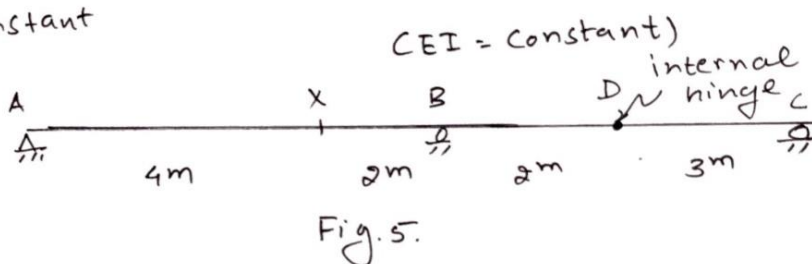 nstant
CEI = Constant)
internal
hinge
A X B D C
4m 2m 2m 3m
Fig. 5.